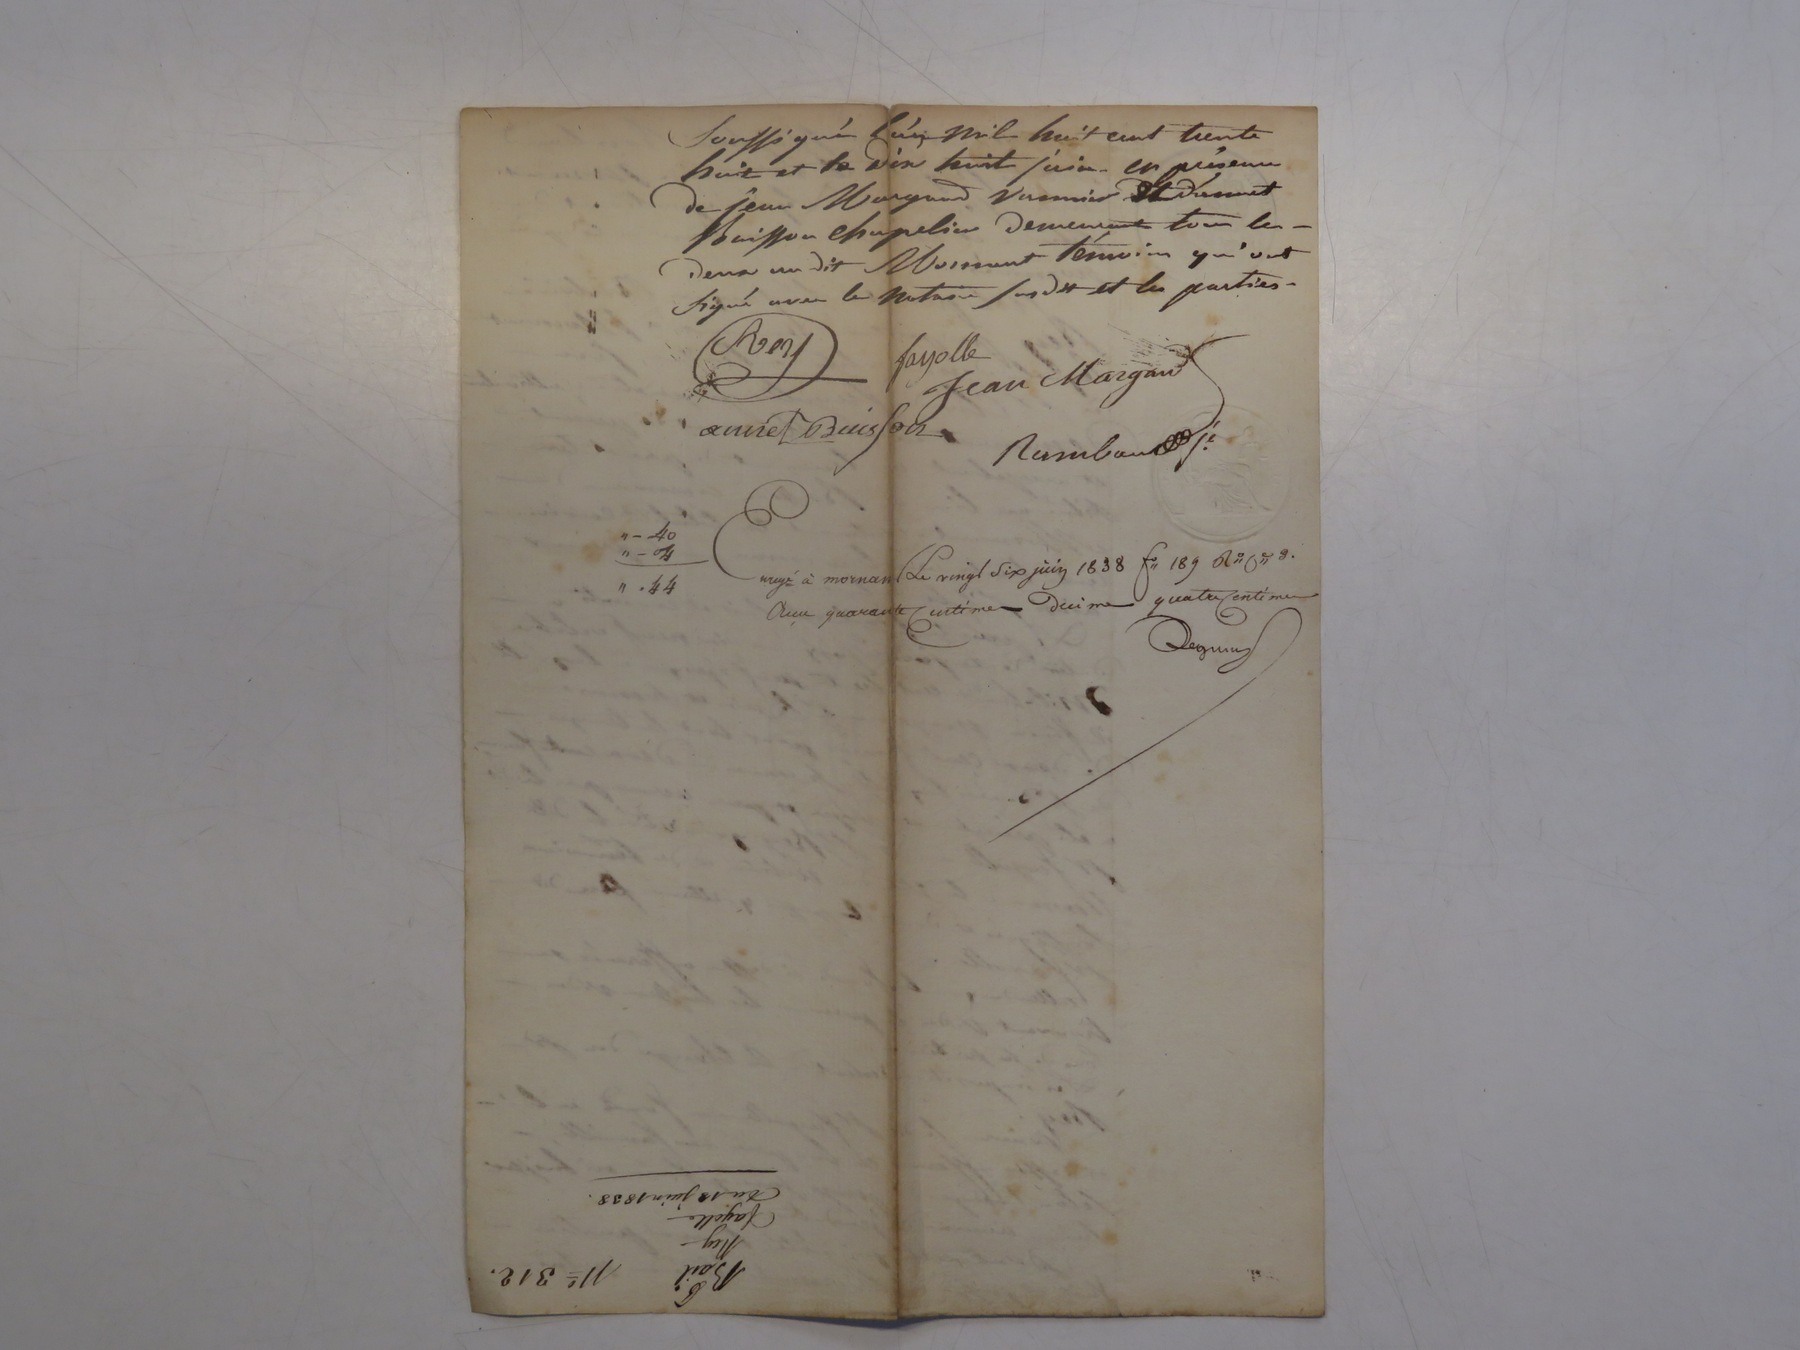 Soussigné l'an mil huit cent trente
huit et le dix huit juin en présence
de jean Margand vannier et d'annet
Buisson chapelier demeurant tous les
deux au dit Mornant témoins qui ont
signé avec le notaire susdit et les parties
Rey
fayolle
Jean Margand
annet Buisson
Rambaud
" - 40
" - 04
" . 44
Enregé à mornant Le vingt Six juin 1838 f° 189 R° C° 8.
Reçu quarante centimes Decime quatre centimes
N° 312.
Bail
Rey
fayolle
du 18 juin 1838.